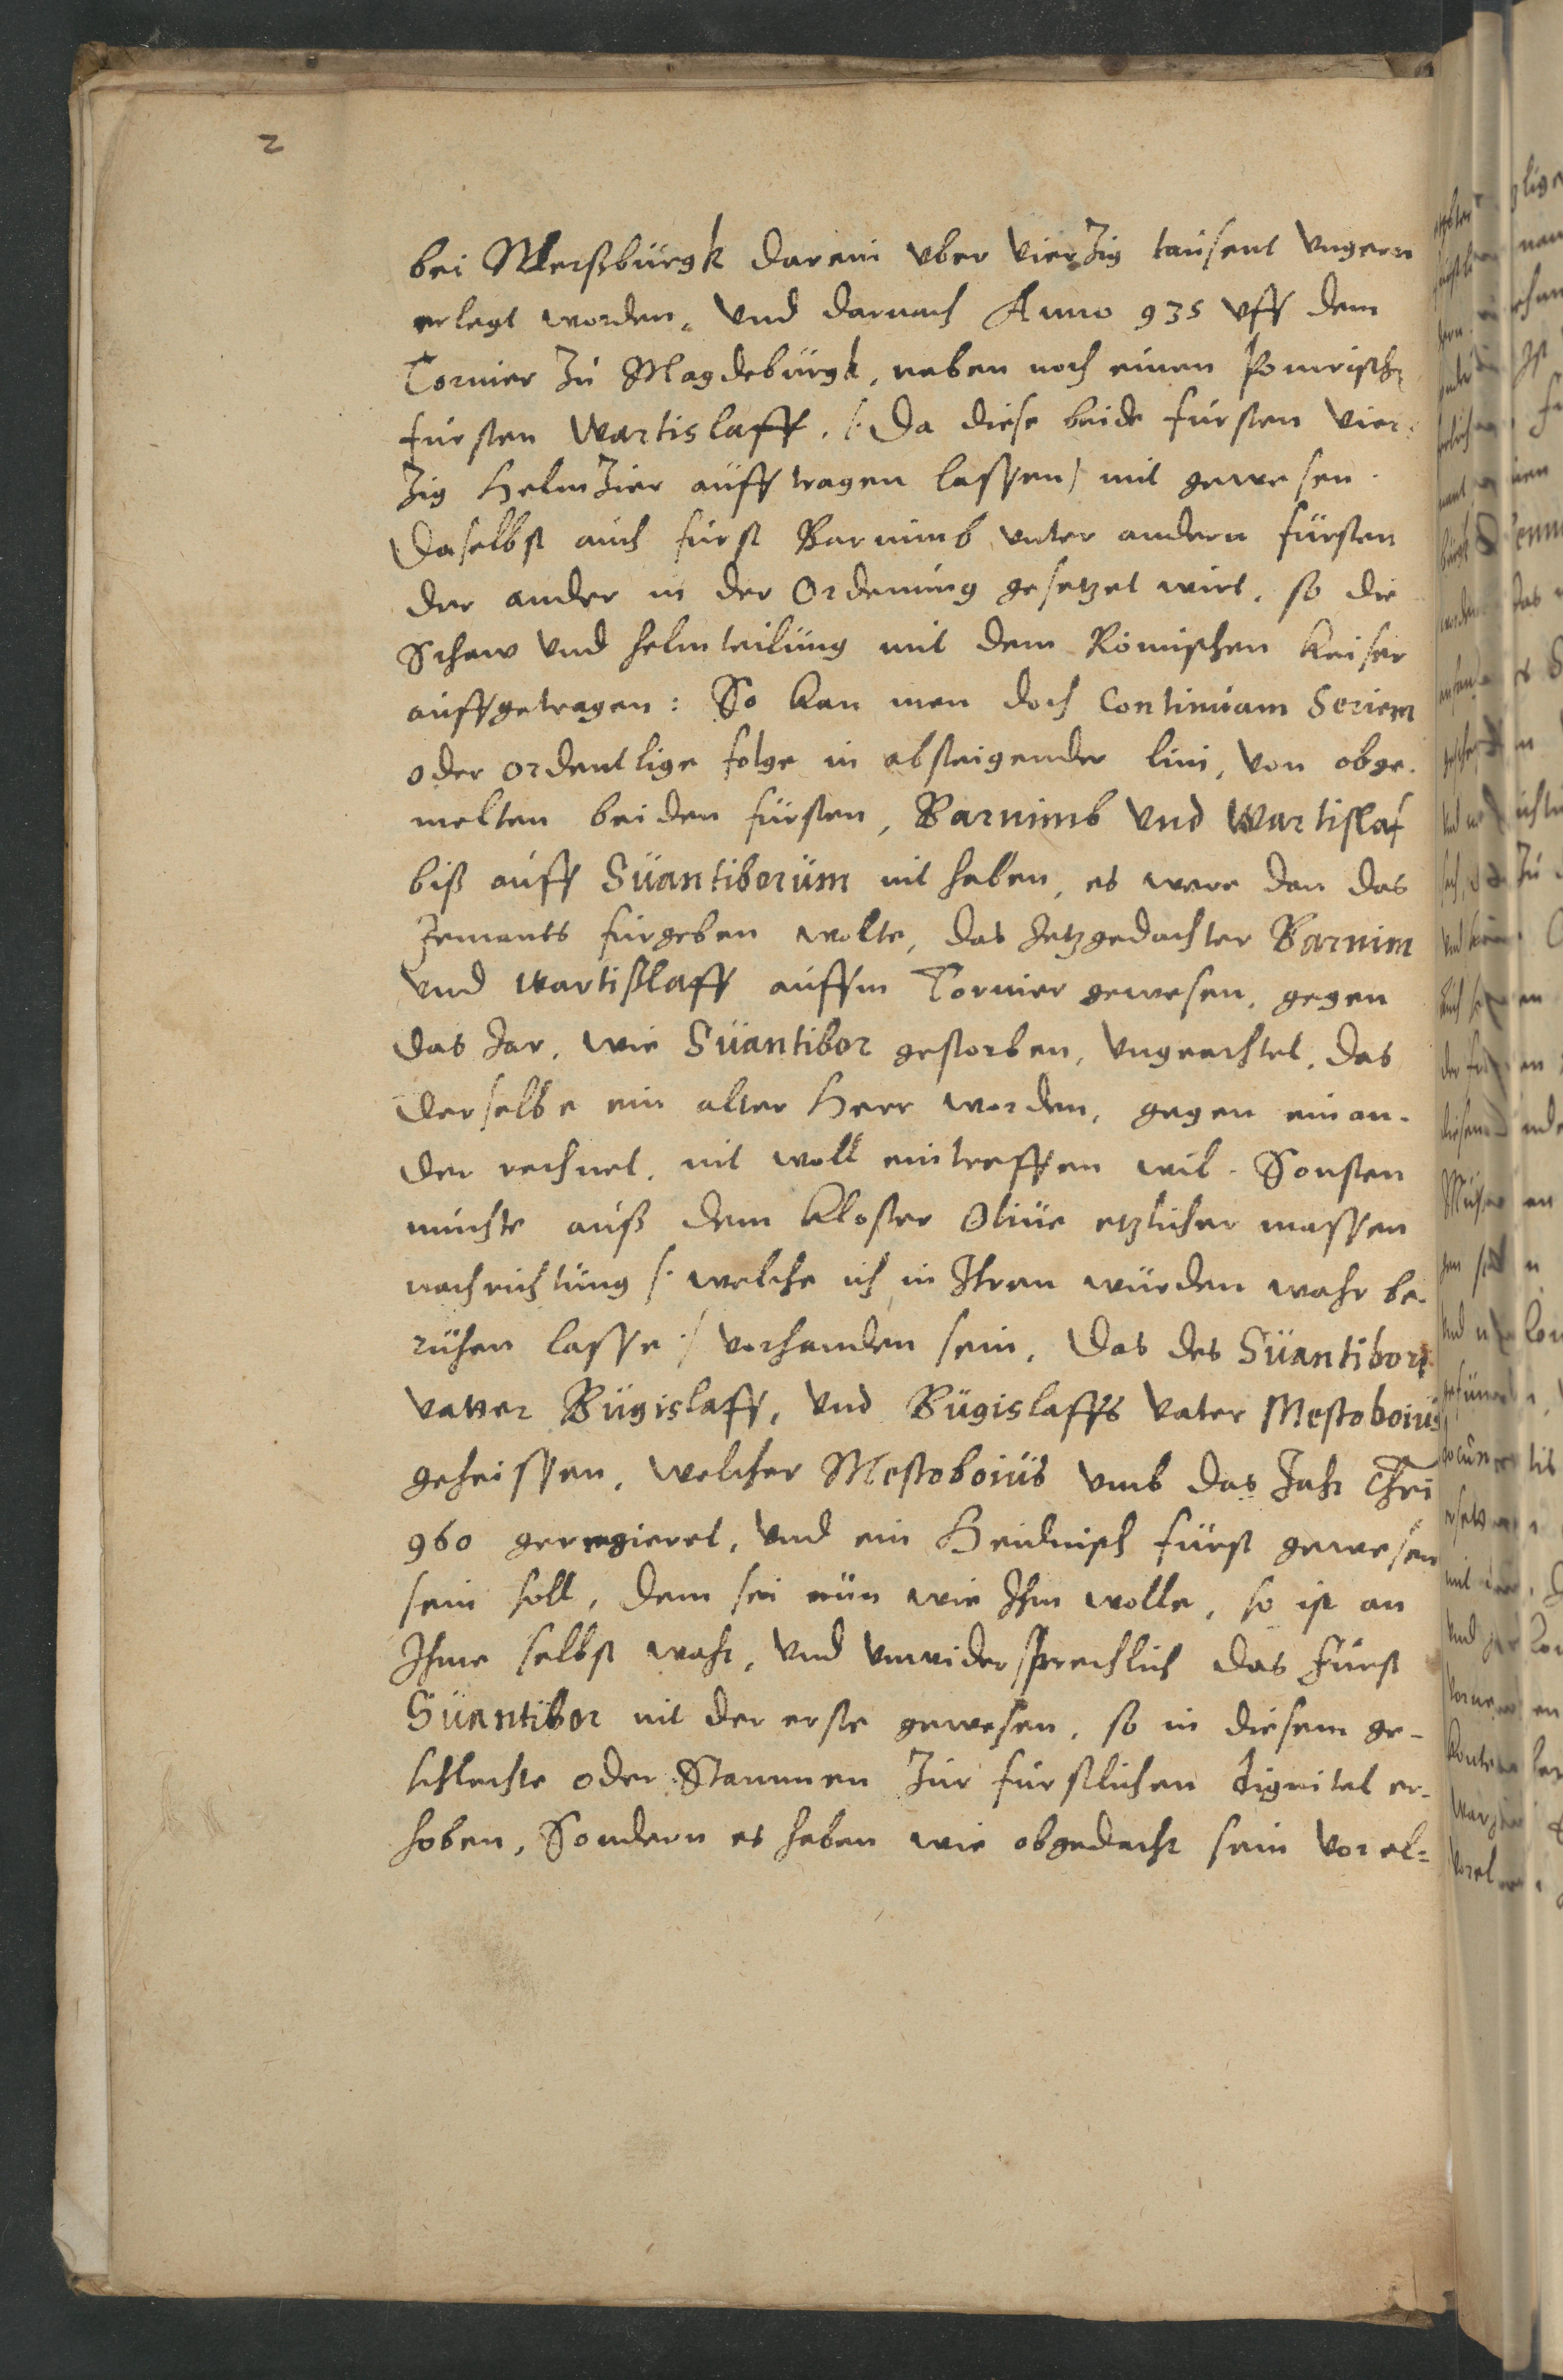 2
bei Merßburgk darein vber Vierzig tausent Vngern
erlegt worden, Vnd darnach Anno 935 vff dem
Tornier zu Magdeburgk, neben noch einen Pomrischn
fursten Wartislaff, /: Da diese beide fursten Vier-
zig Helmzier auff tragen lassen / mit gewesen.
Daselbst auch furst Barnimb vnter andern fürsten
der ander in der Ordenung gesetzet wirt, so die
Schaw Vnd helmteilung mit dem Römischen Keiser
auffgetragen: So kan men doch Continuam Seriem
oder ordentlige folge in absteigender lini, Von obge-
melten beiden fürsten, Barnimb Vnd Wartislaf
biß auff Suantiborum nit haben, es were dan das
Jemants furgeben wolte, das Jetzgedachter Barnim
Vnd Wartißlaff auffm Tornier gewesen, gegen
das Jar, wie Suantibor gestorben, Vngeachtet, das
derselbe ein alter Herr worden, gegen einan-
der rechnet, nit woll eintreffen wil. Sonsten
müchte auß dem Kloster Oliue etzlicher massen
nachrichtung /: welche ich in Ihren würden wahr be-
ruhen lasse :/ vorhanden sein, Das des Suantibori
vatter Bugislaff, Vnd Bugislaffs Vater Mestoboius
geheissen, welcher Mestoboius Vmb das Jahr Chri
960 geregieret, Vnd ein Heidnisch fürst gewesen
sein soll, dem sei nun wie Ihm wolle, so ist an
Ihme selbst wahr, Vnd Vnwidersprechlich das Fürst
Suantibor nit der erste gewesen, so in diesem ge-
schlechte oder Stammen zur furstlichen dignitet er-
hoben, Sondern es haben wie obgedacht sein Vorel-